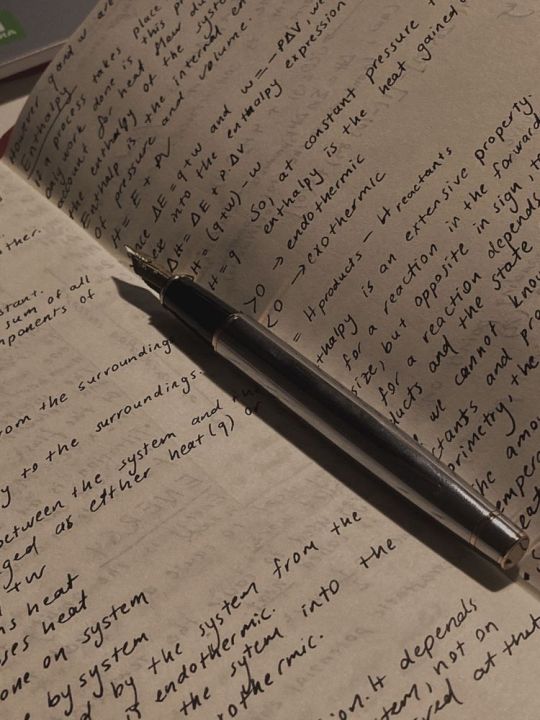 however q and w are
Enthalpy
is a process takes place
only work done is this pr
account for heat flow du
the enthalpy of the syste
Enthalp is the internal en
of pressure and volume.
H = E + PV
ΔE = q+w and w = -PΔV, we
into the enthalpy expression
ΔH = ΔE + P.ΔV
= (q+w) - w
H = q So, at constant pressure t
enthalpy is the heat gained o
>0 → endothermic
<0 → exothermic
= H products - H reactants
thalpy is an extensive property.
for a reaction in the forward
size, but opposite in sign, to
for a reaction depends
ducts and the state
we cannot know
ctants and pro
orimetry, the
the amou
tempera
heat
ther.
stant.
sum of all
ponents of
from the surroundings
y to the surroundings.
between the system and the
ged as either heat (q) or
+w
ns heat
oses heat
one on system
e by system
d by the system from the
is endothermic.
the sytem into the
othermic.
ion. It depends
tem, not on
ured at that